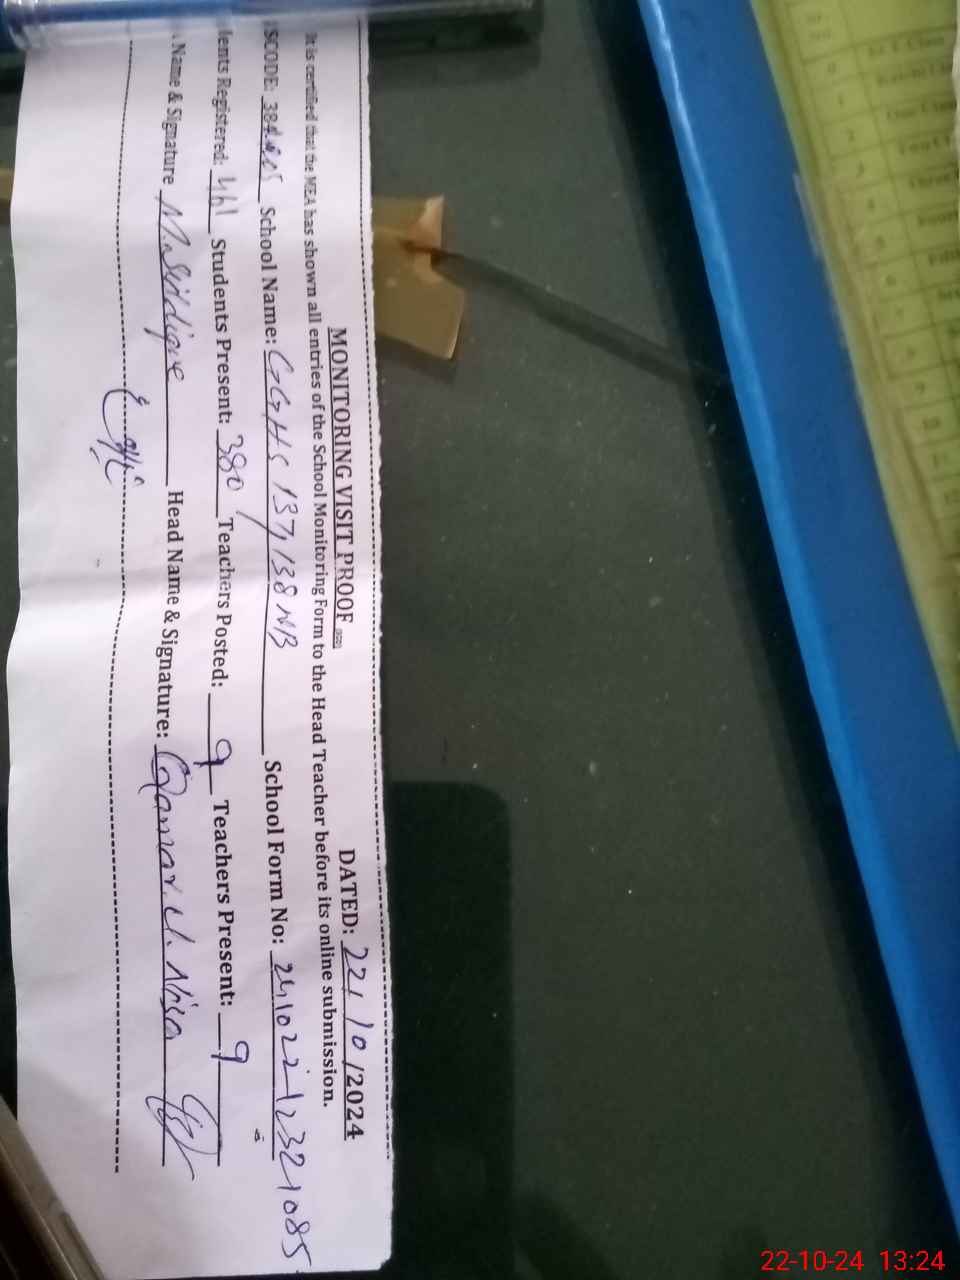 MONITORING VISIT PROOF DATED: 22/10/2024
It is certified that the MEA has shown all entries of the School Monitoring Form to the Head Teacher before its online submission.
SCODE: School Name: GGHS 137,138 NB School Form No:
dents Registered: 461 Students Present: 380 Teachers Posted: 9 Teachers Present: 9
Name & Signature M. Siddique Head Name & Signature: Qamar.U.Nisa
22-10-24 13:24